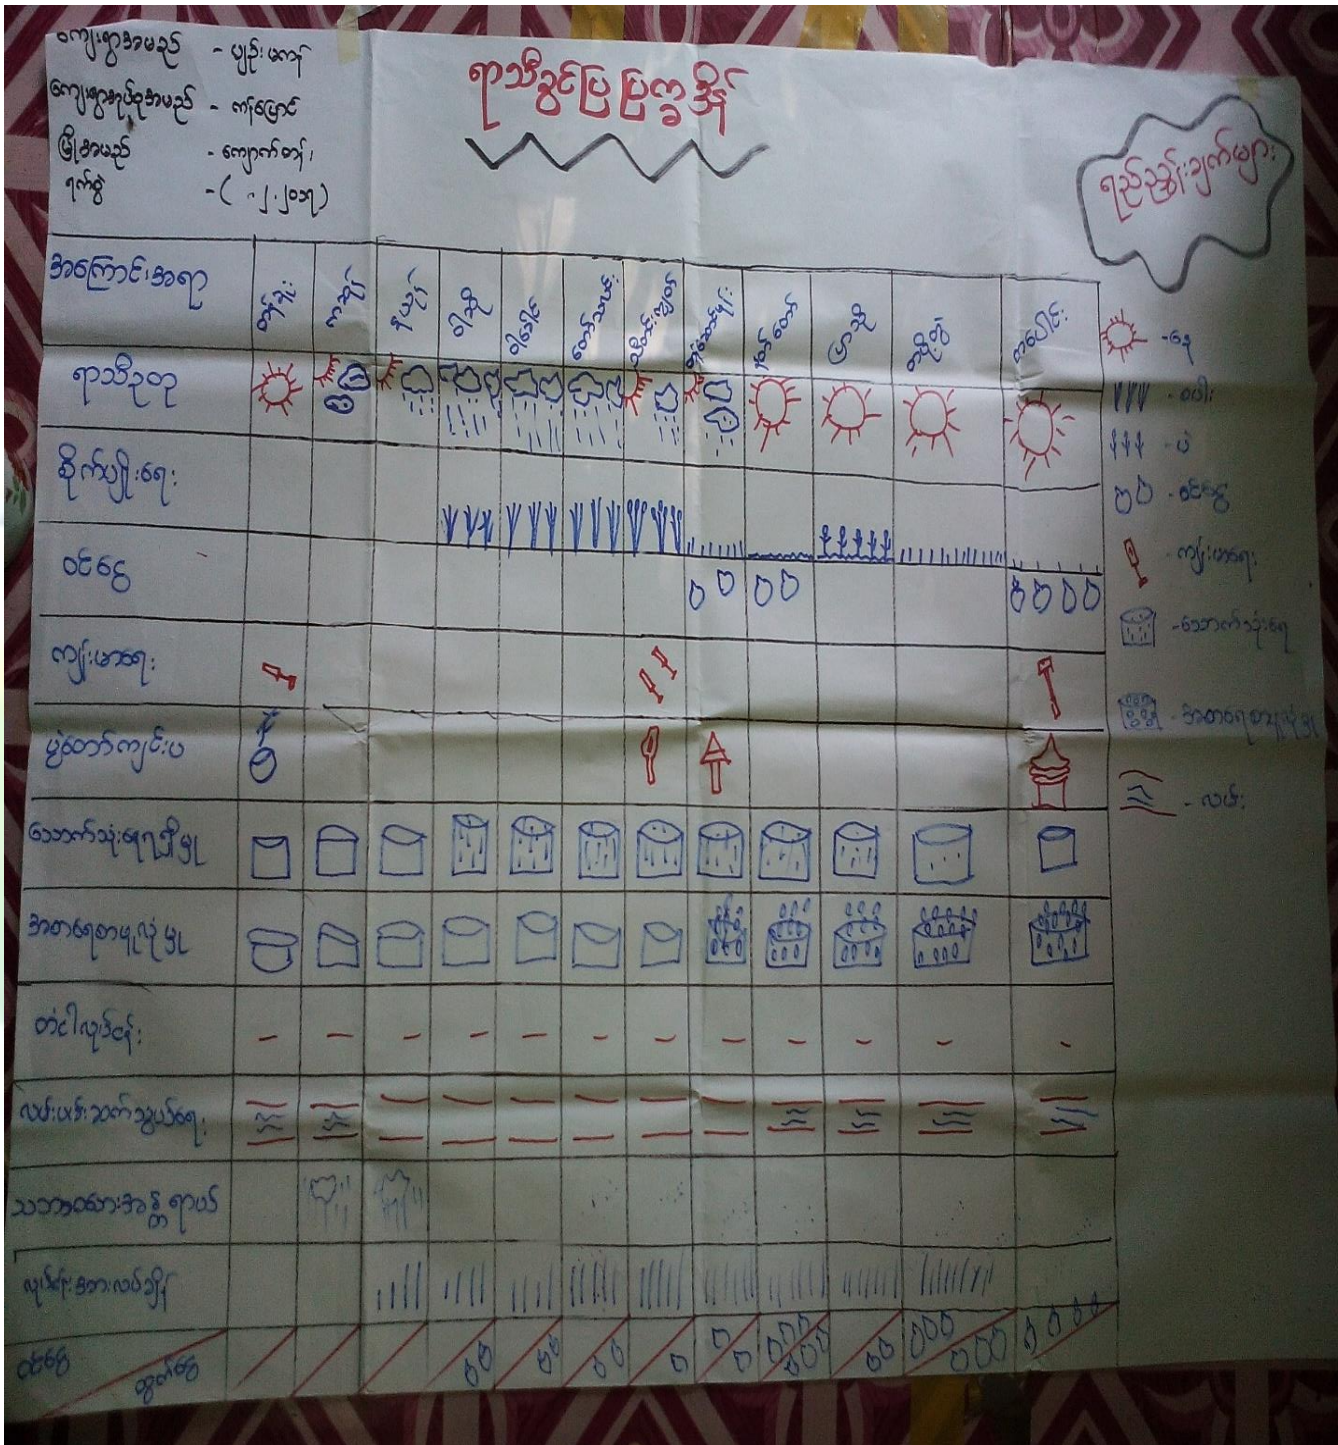 ကျေးရွာအမည် - ပျဉ်းမကန်
ကျေးရွာအုပ်စုအမည် - ကန်မြောင်
မြို့အမည် - ကျောက်တန်း
ရက်စွဲ - ( -၂.၂၀၁၇)
ရာသီခွင်ပြ ပြက္ခဒိန်
ရည်ညွှန်းချက်များ
အကြောင်းအရာ တန်ခူး ကဆုန် နယုန် ဝါဆို ဝါခေါင် တော်သလင်း သီတင်းကျွတ် တန်ဆောင်မုန်း နတ်တော် ပြာသို တပို့တွဲ တပေါင်း
ရာသီဥတု
စိုက်ပျိုးရေး
ဝင်ငွေ
ကျန်းမာရေး
ပွဲတော်ကျင်းပ
သောက်သုံးရေရရှိမှု
အစာရေစာဖူလုံမှု
တံငါလုပ်ငန်း
လမ်းပန်းဆက်သွယ်ရေး
သဘာဝဘေးအန္တရာယ်
လုပ်ငန်းအားလပ်ချိန်
ဝင်ငွေ ထွက်ငွေ
- နေ
- စပါး
- ပဲ
- ဝင်ငွေ
- ကျန်းမာရေး
- သောက်သုံးရေ
- အစာရေစာဖူလုံမှု
- လမ်း